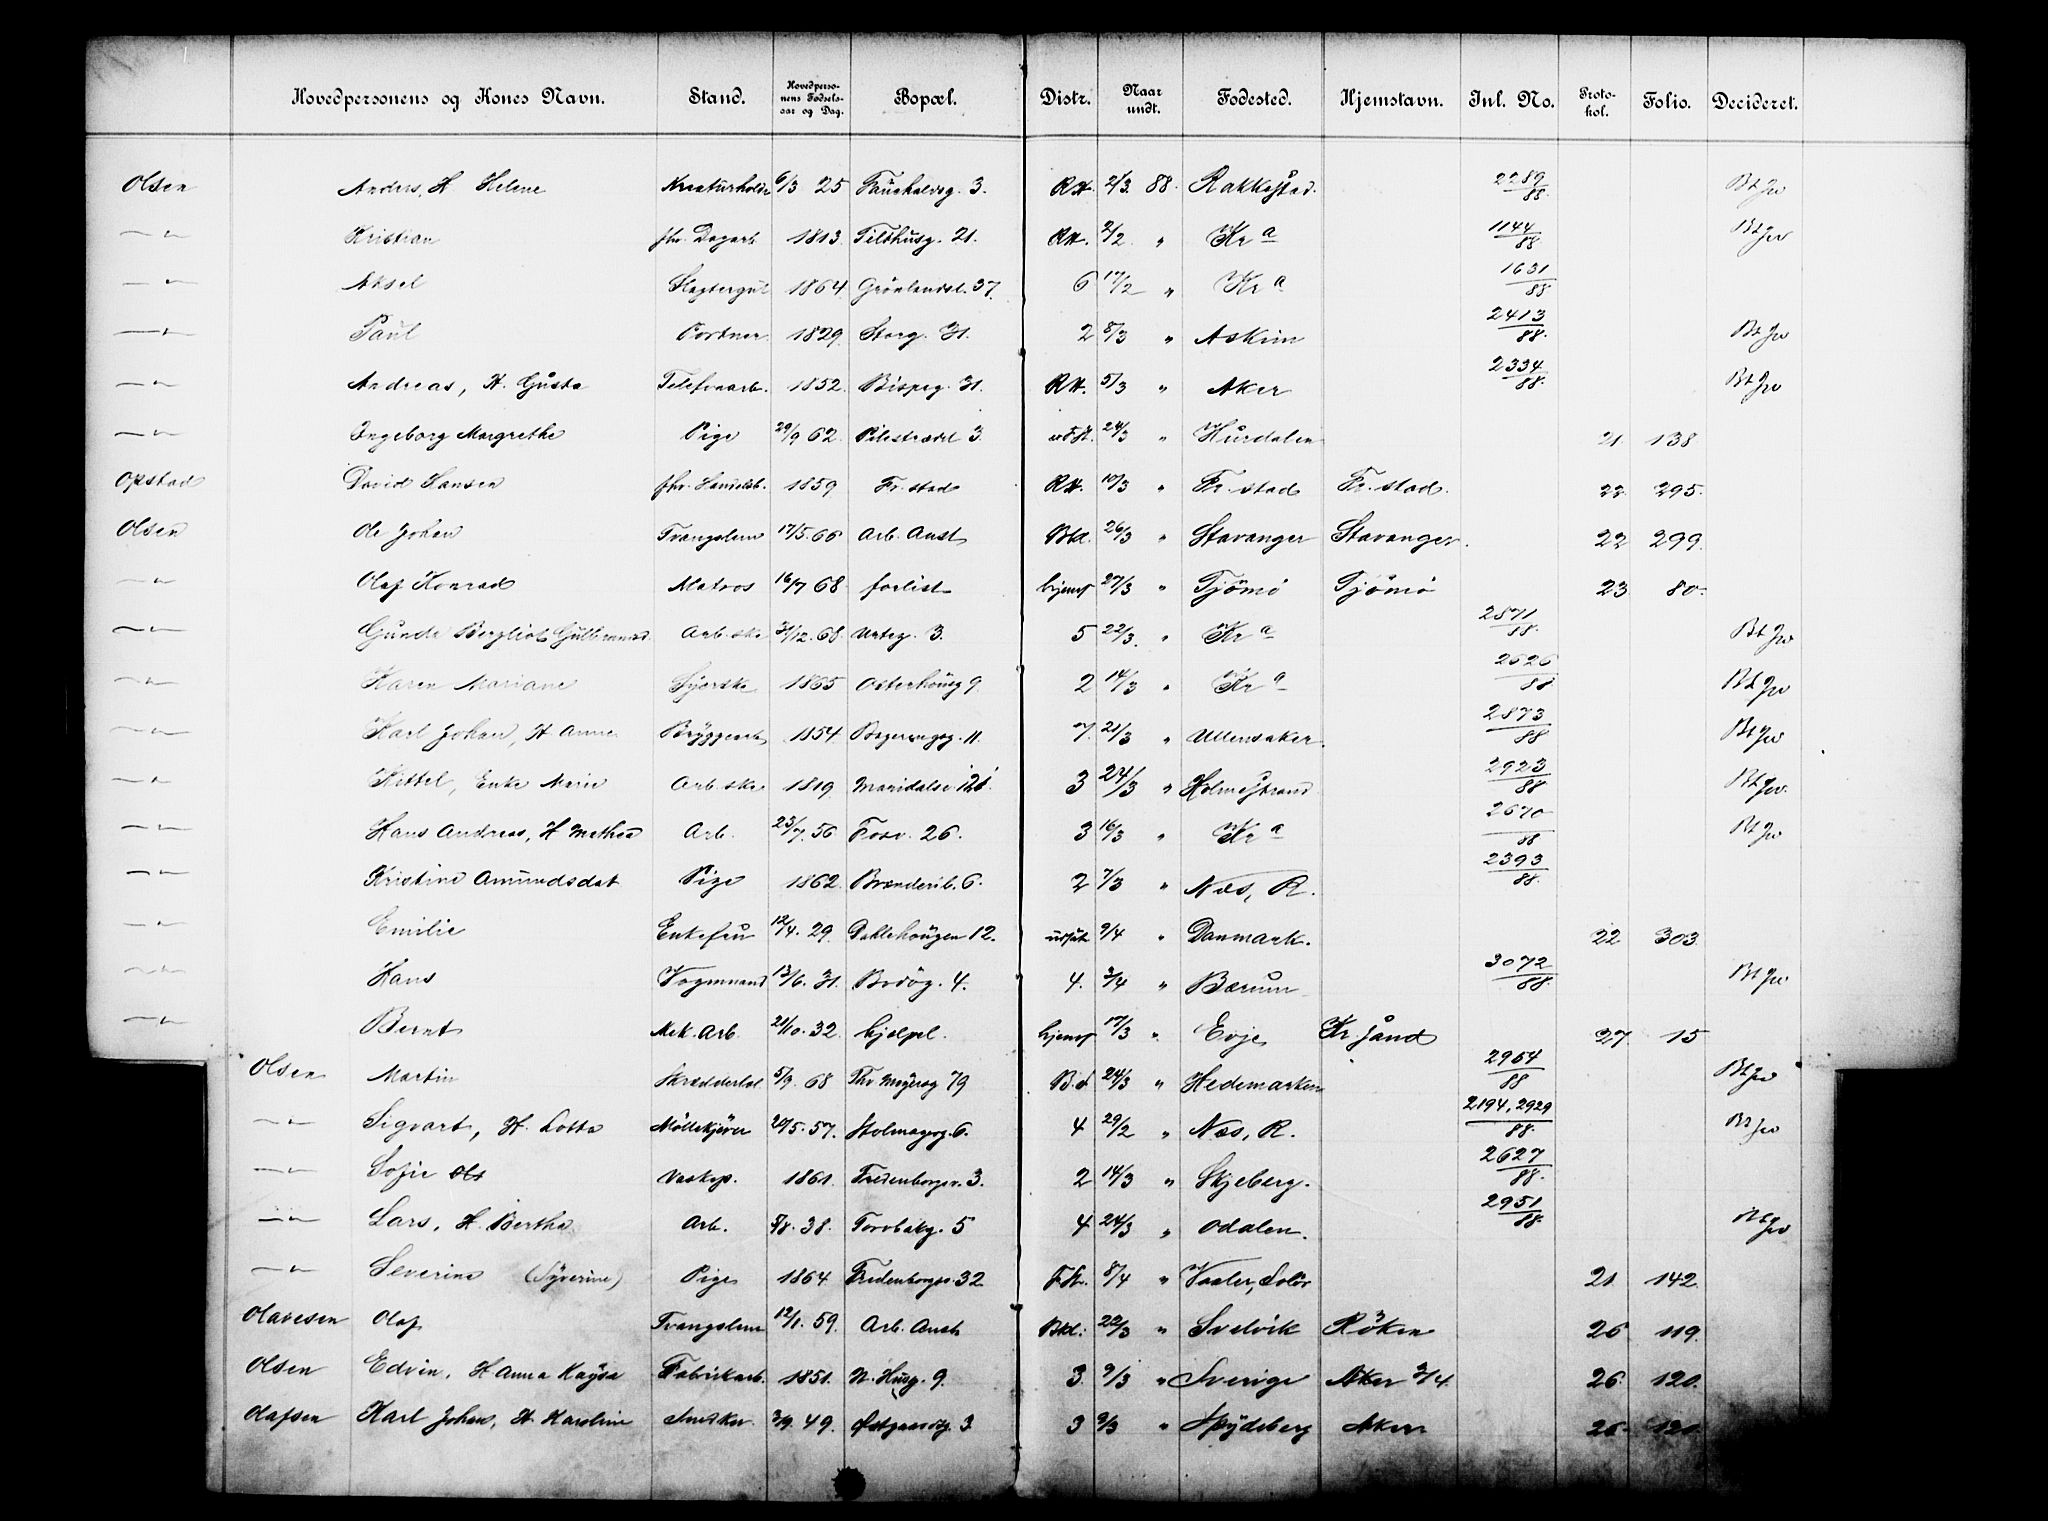 Hovedpersonens og Kones Navn. Stand. Hovedperso-nens Fødsels-aar og Dag. Bopæl. Distr. Naar undt. Fødested. Hjemstavn. Inl. No. Proto-kol. Folio. Decideret.
Olsen Anders, H Helene 6/3 25 3. R.H. 2/3 88. Rakkestad. 2289/88
—"— Kristian fhv. Dagarb. 1813. Tilthusg. 21. R.H. 2/2 " Kr a 1144/88
—"— Aksel 1864. Grønlandsl. 37. 6 17/2 " Kr a 1631/88
—"— Paul Portner 1829. Storg. 31. 2 8/3 " Askim 2413/88.
—"— Andreas, H. Gusta Telefonarb. 1852. Bispeg. 31. R.H. 5/3 " Aker 2334/88.
—"— Ingeborg Margrethe Pige 29/9 62. Pilestrædet 3. 24/3 " Hurdalen 21. 138
Opstad David Hansen fhv. Handelsb. 1859 Fr. stad R.H. 10/3 " Fr. stad Fr. stad. 22. 295.
Olsen Ole Johan Tvangslem 17/5. 66 Arb. Anst. Bkl. 26/3 " Stavanger Stavanger. 22 299.
—"— Olaf Konrad Matros 16/7 68. forlist hjemf 27/3 " Tjømø Tjømø 23 80.
—"— Gunda Bergliot Gulbrands. Arb.ske 31/12. 68. Urteg. 3. 5 22/3. " Kr a 2871/88.
—"— Karen Mariane Syerske 1865 Osterhausg 9 2 14/3 " Kr a 2626/88
—"— Karl Johan, H Anne Bryggearb 1854. 11. 7. 21/3 " Ullensaker. 2873/88
—"— Kittel, Enke Marie Arb.ske 1819 Maridalsv 121. 3 24/3 " Holmestrand 2923/88
—"— Hans Andreas, H Mathea Arb. 23/7. 56 Fosv. 26. 3 16/3 " Kr a 2670/88
—"— Kristine Amundsdat Pige 1862. Brænderib. 6. 2 7/3 " Næs, R. 2393/88.
—"— Emilie Enkefru 12/4. 29. Dahlehaugen 12. udsat 9/4 " Danmark. 22 303.
—"— Hans Vognmand 13/6. 31. Bodøg. 4. 4. 3/4 " Bærum 3072/88.
—"— Bernt Mek. Arb. 21/10. 32. hjælpel. hjemf 17/3 " Evje Kr. sand 27 15
Olsen Martin 5/9. 68 Thv Meyersg 79 24/3 " Hedemarken 2964/88
—"— Sigvart, H. Lotta Møllekjører 20/5. 57. Holmsgsg. 6. 4 29/2 " Næs, R. 2194, 2929/88.
—"— Sofie Vaskep. 1861. Fredensborgsv. 3. 2 14/3 " Skjeberg. 2627/88.
—"— Lars, H. Bertha Arb. 5/8. 38. Torvbakg. 5 4 24/3 " Odalen. 2951/88.
—"— Severine (Syverine) Pige 1864 Fredensborgsv. 32 8/4 " Vaaler, Solør 21. 142.
Olavesen Olaf Tvangslem 12/1. 59. Arb. Anst. Bkl. 22/3 " Svelvik Røken 26 119.
Olsen Edvin, H Anna Kaysa Fabrikarb. 1851. N. Husg. 9. 3. 9/3 " Sverige Aker 3/4. 26. 120.
Olafsen Karl Johan, H. Karoline Snedker 3/9. 49. Østgaardsg. 3 3 9/3 " Spydeberg Aker 26. 120.